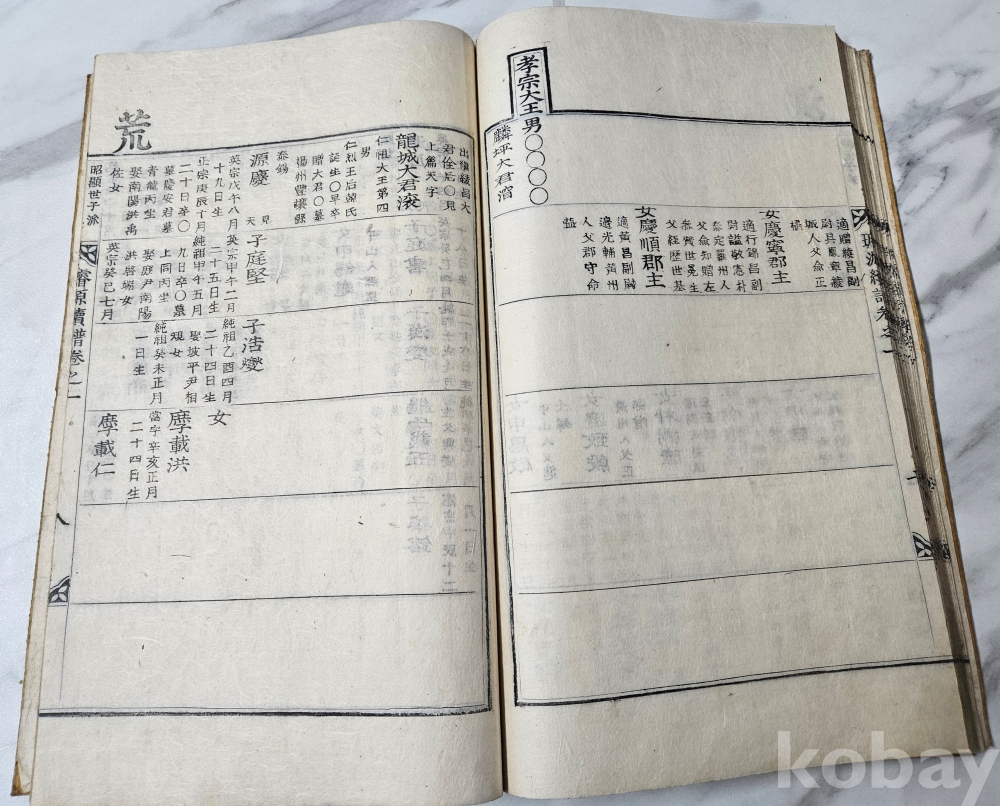 適贈綾昌副
尉具鳳章綾
城人父僉正
女慶寧郡主
適行錦昌副
尉謚敬憲朴
泰定羅州人
父僉知贈左
父經歷世基
女慶順郡主
適黃昌副尉
邊光輔黃州
人父郡守命
益
孝宗大王男〇〇〇〇
麟坪大君㴭
出繼綾昌大
君佺后〇見
上篇天字
龍城大君滚
仁祖大王第四
男
仁烈王后韓氏
誕生〇早卒
贈大君〇墓
楊州豐壤縣
泰錫
源慶
見天
英宗戊午八月
十九日生
正宗庚辰十月
二十日卒〇
墓慶安君墓
青龍丙坐
娶南陽洪禹
佐女
子庭堅
英宗甲午二月
二十五日生
純祖甲午五月
九日卒〇墓
上同丙坐
洪啓瑞女
英宗癸巳七月
子浩燮
純祖乙酉四月
二十四日生
娶坡平尹相
純祖癸未正月
一日生
女
載洪
當宁辛亥正月
二十四日生
載仁
荒
昭顯世子派
璿源續譜卷之一
八
kobay